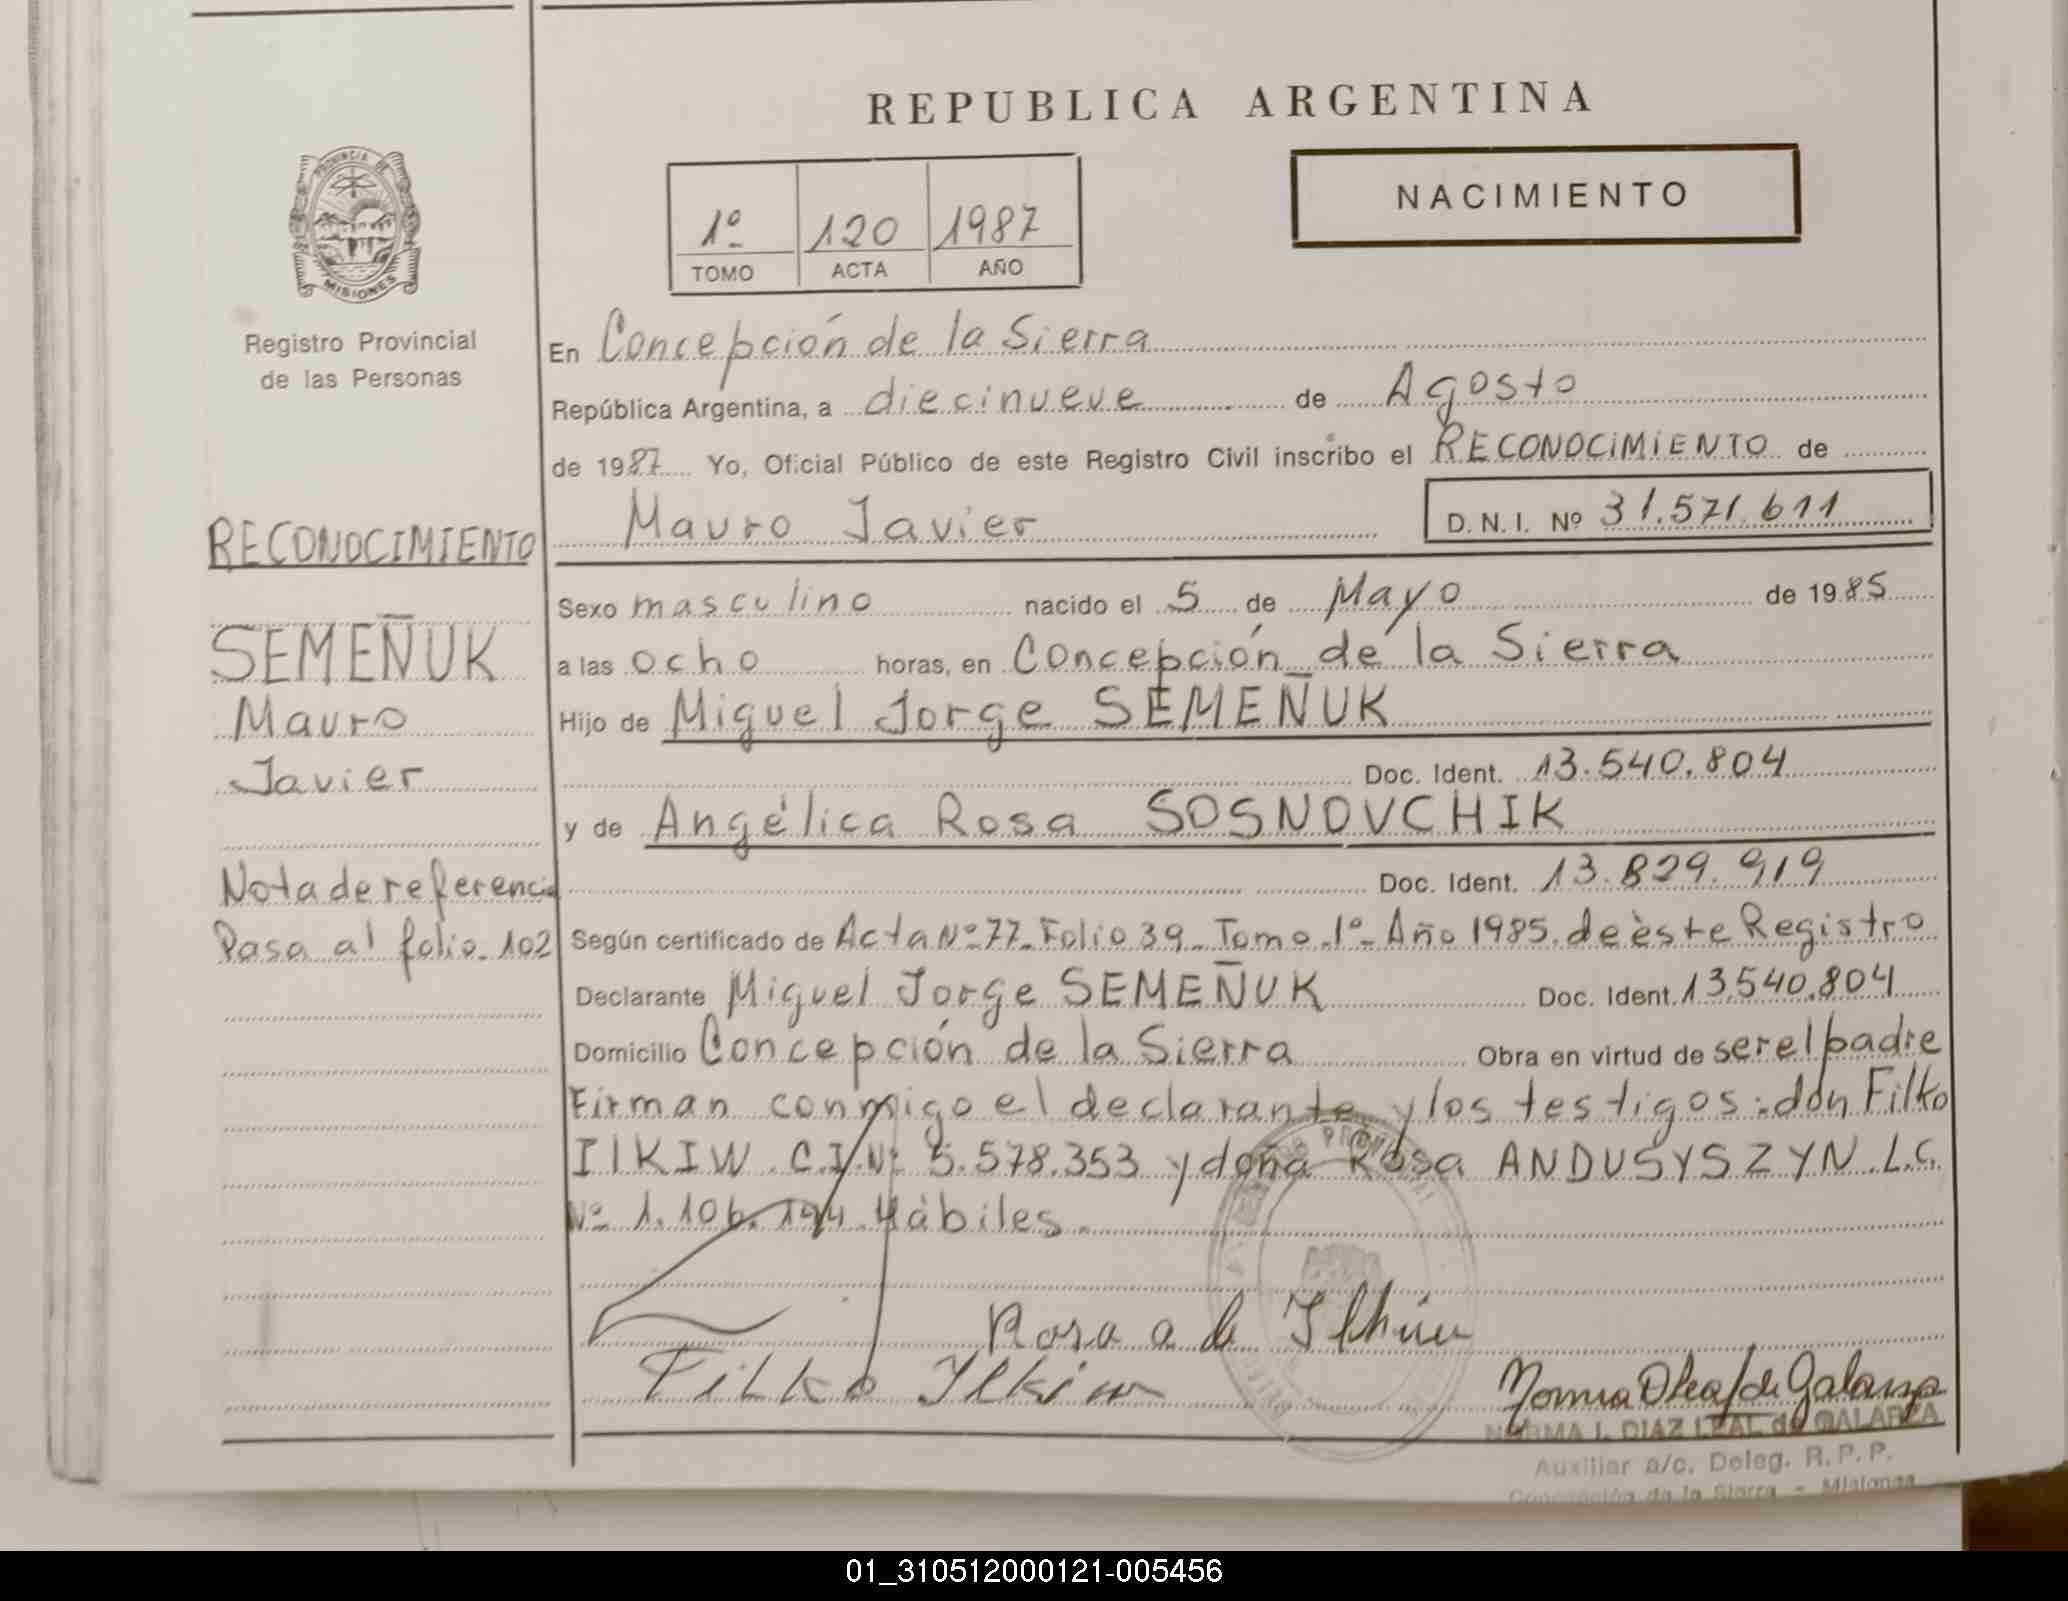 REPUBLICA ARGENTINA
NACIMIENTO
1º 120 1987
TOMO ACTA AÑO
PROVINCIA DE
MISIONES
Registro Provincial
de las Personas
En Concepción de la Sierra
República Argentina, a diecinueve de Agosto
de 1987 Yo, Oficial Público de este Registro Civil inscribo el RECONOCIMIENTO de
Mauro Javier D.N.I. Nº 31.571.611
Sexo masculino nacido el 5 de Mayo de 1985
a las ocho horas, en Concepción de la Sierra
Hijo de Miguel Jorge SEMEÑUK
Doc. Ident. 13.540.804
y de Angélica Rosa SOSNOVCHIK
Doc. Ident. 13.829.919
Según certificado de Acta Nº 77 Folio 39 Tomo 1º Año 1985 de èste Registro
Declarante Miguel Jorge SEMEÑUK Doc. Ident. 13.540.804
Domicilio Concepción de la Sierra Obra en virtud de ser el padre
Firman conmigo el declarante y los testigos: don Filko
IlKIW C.I.Nº 5.578.353 y doña Rosa ANDUSYSZYN L.C.
Nº 1.106.194 Hábiles.
RECONOCIMIENTO
SEMEÑUK
Mauro
Javier
Nota de referencia
Pasa al folio 102
Rosa a de
Filko Ilkiw
NORMA I. DIAZ LEAL de GALARZA
Auxiliar a/c. Deleg. R.P.P.
Concepción de la Sierra - Misiones
01_310512000121-005456